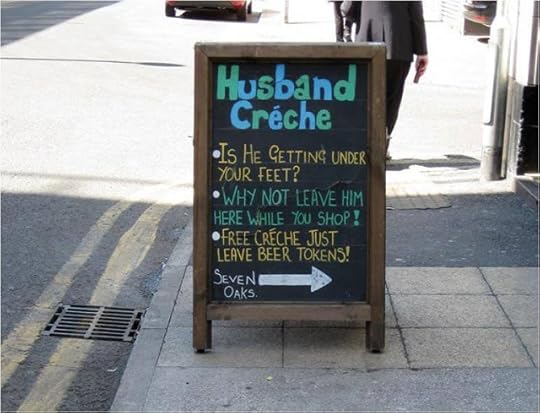 Husband
Créche
• Is He Getting under
your feet?
• Why not leave him
here while you shop!
• Free Créche Just
leave beer tokens!
Seven
Oaks.